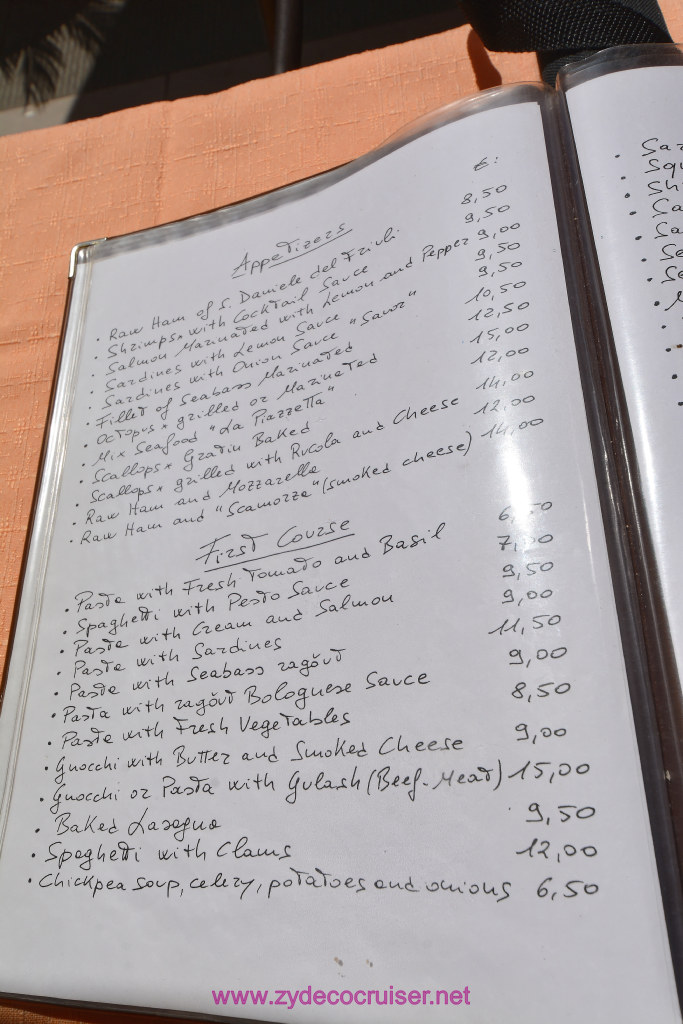 €:
Appetizers
• Raw Ham of S. Daniele del Friuli 8,50
• Shrimps* with Cocktail Sauce 9,50
• Salmon Marinated with Lemon and Pepper 9,00
• Sardines with Lemon Sauce 9,50
• Sardines with Onion Sauce "Savor" 9,50
• Fillet of Seabass Marinated 10,50
• Octopus* grilled or Marineted 12,50
• Mix Seafood "La Piazzetta" 15,00
• Scallops* Gratin Baked 12,00
• Scallops* grilled with Rucola and Cheese 14,00
• Raw Ham and Mozzarella 12,00
• Raw Ham and "Scamozza" (smoked cheese) 14,00
First Course
• Pasta with Fresh Tomato and Basil 6,50
• Spaghetti with Pesto Sauce 7,50
• Pasta with Cream and Salmon 9,50
• Pasta with Sardines 9,00
• Pasta with Seabass ragŏut 11,50
• Pasta with ragŏut Bolognese Sauce 9,00
• Pasta with Fresh Vegetables 8,50
• Gnocchi with Butter and Smoked Cheese 9,00
• Gnocchi or Pasta with Gulash (Beef-Meat) 15,00
• Baked Lasagna 9,50
• Spaghetti with Clams 12,00
• Chickpea soup, celery, potatoes and onions 6,50
www.zydecocruiser.net